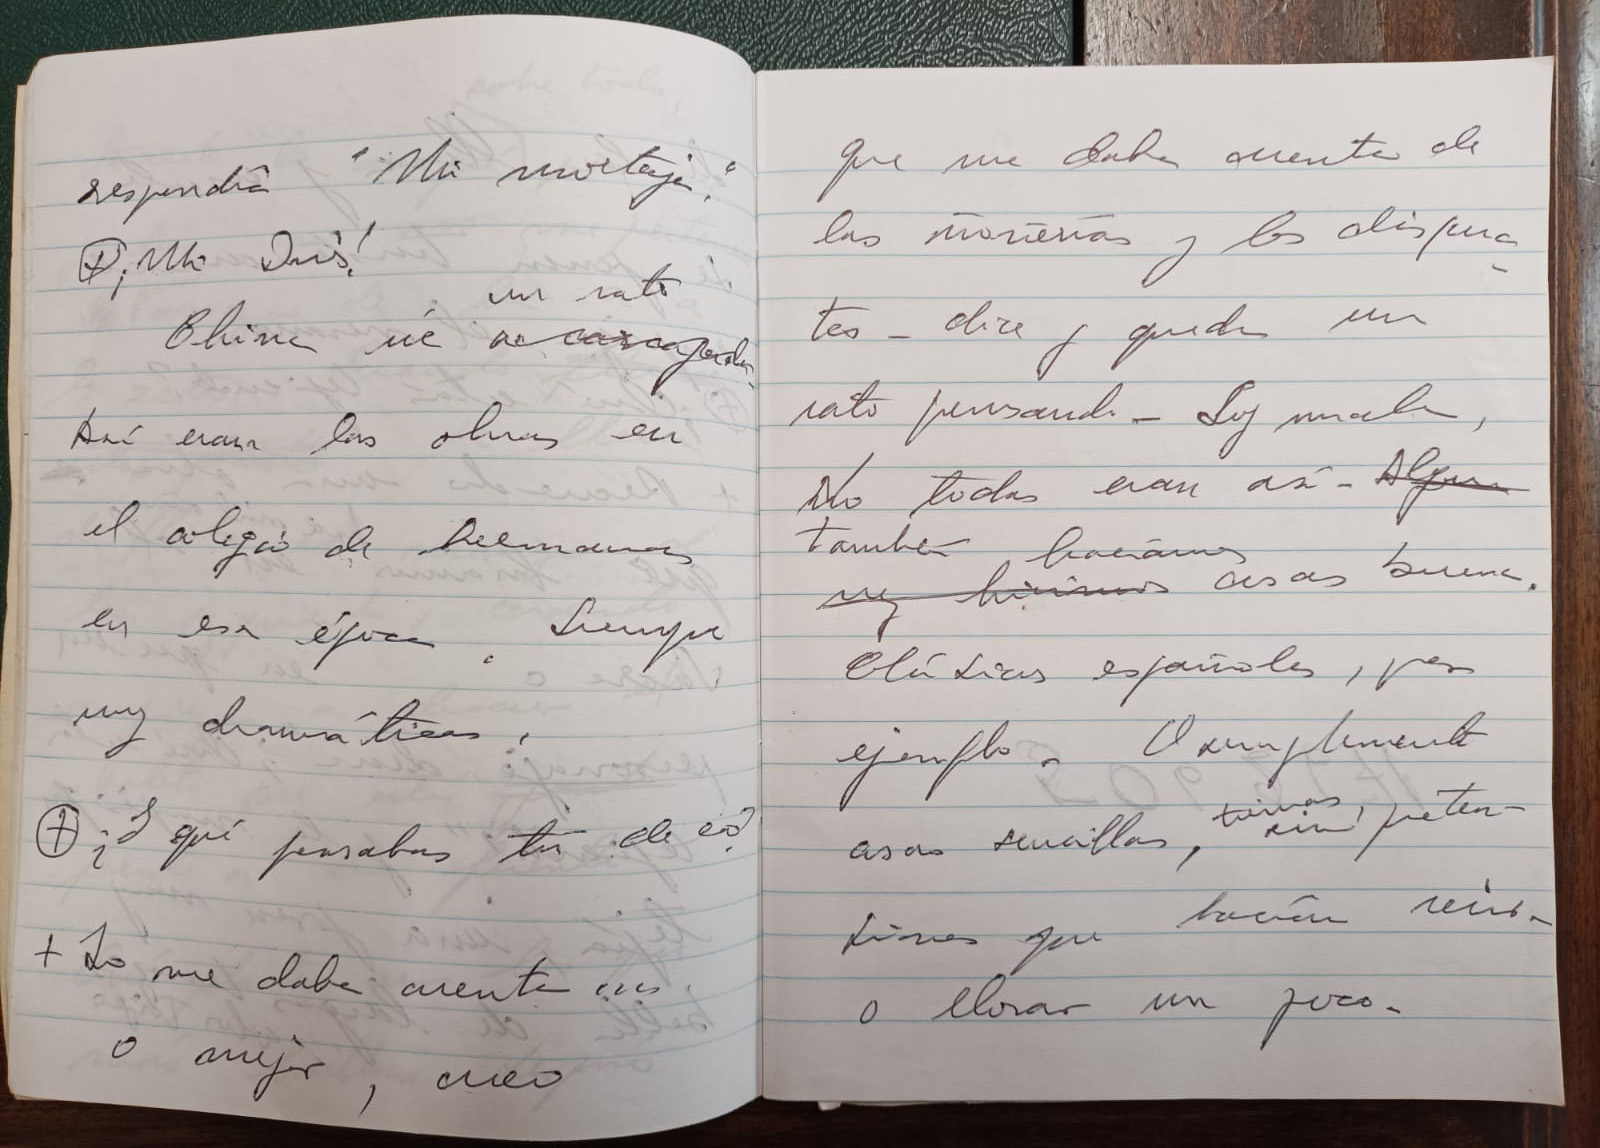 respondía "Mi mortaja."
⊕ ¡Mi Dios!
un rato
China ríe a carcajadas
Así eran las obras en
el colegio de hermanas
en esa época. Siempre
muy dramáticas.
⊕ ¿Y qué pensabas tú de eso?
+ Yo me daba cuenta
o mejor, creo
que me daba cuenta de
las ñoñerías y los dispara-
tes - dice y queda un
rato pensando - Soy mala,
No todas eran así -
también hacíamos
cosas buenas.
Clásicas españoles, por
ejemplo. O simplemente
cosas sencillas, tiernas, sin preten-
siones que hacían reír
o llorar un poco.